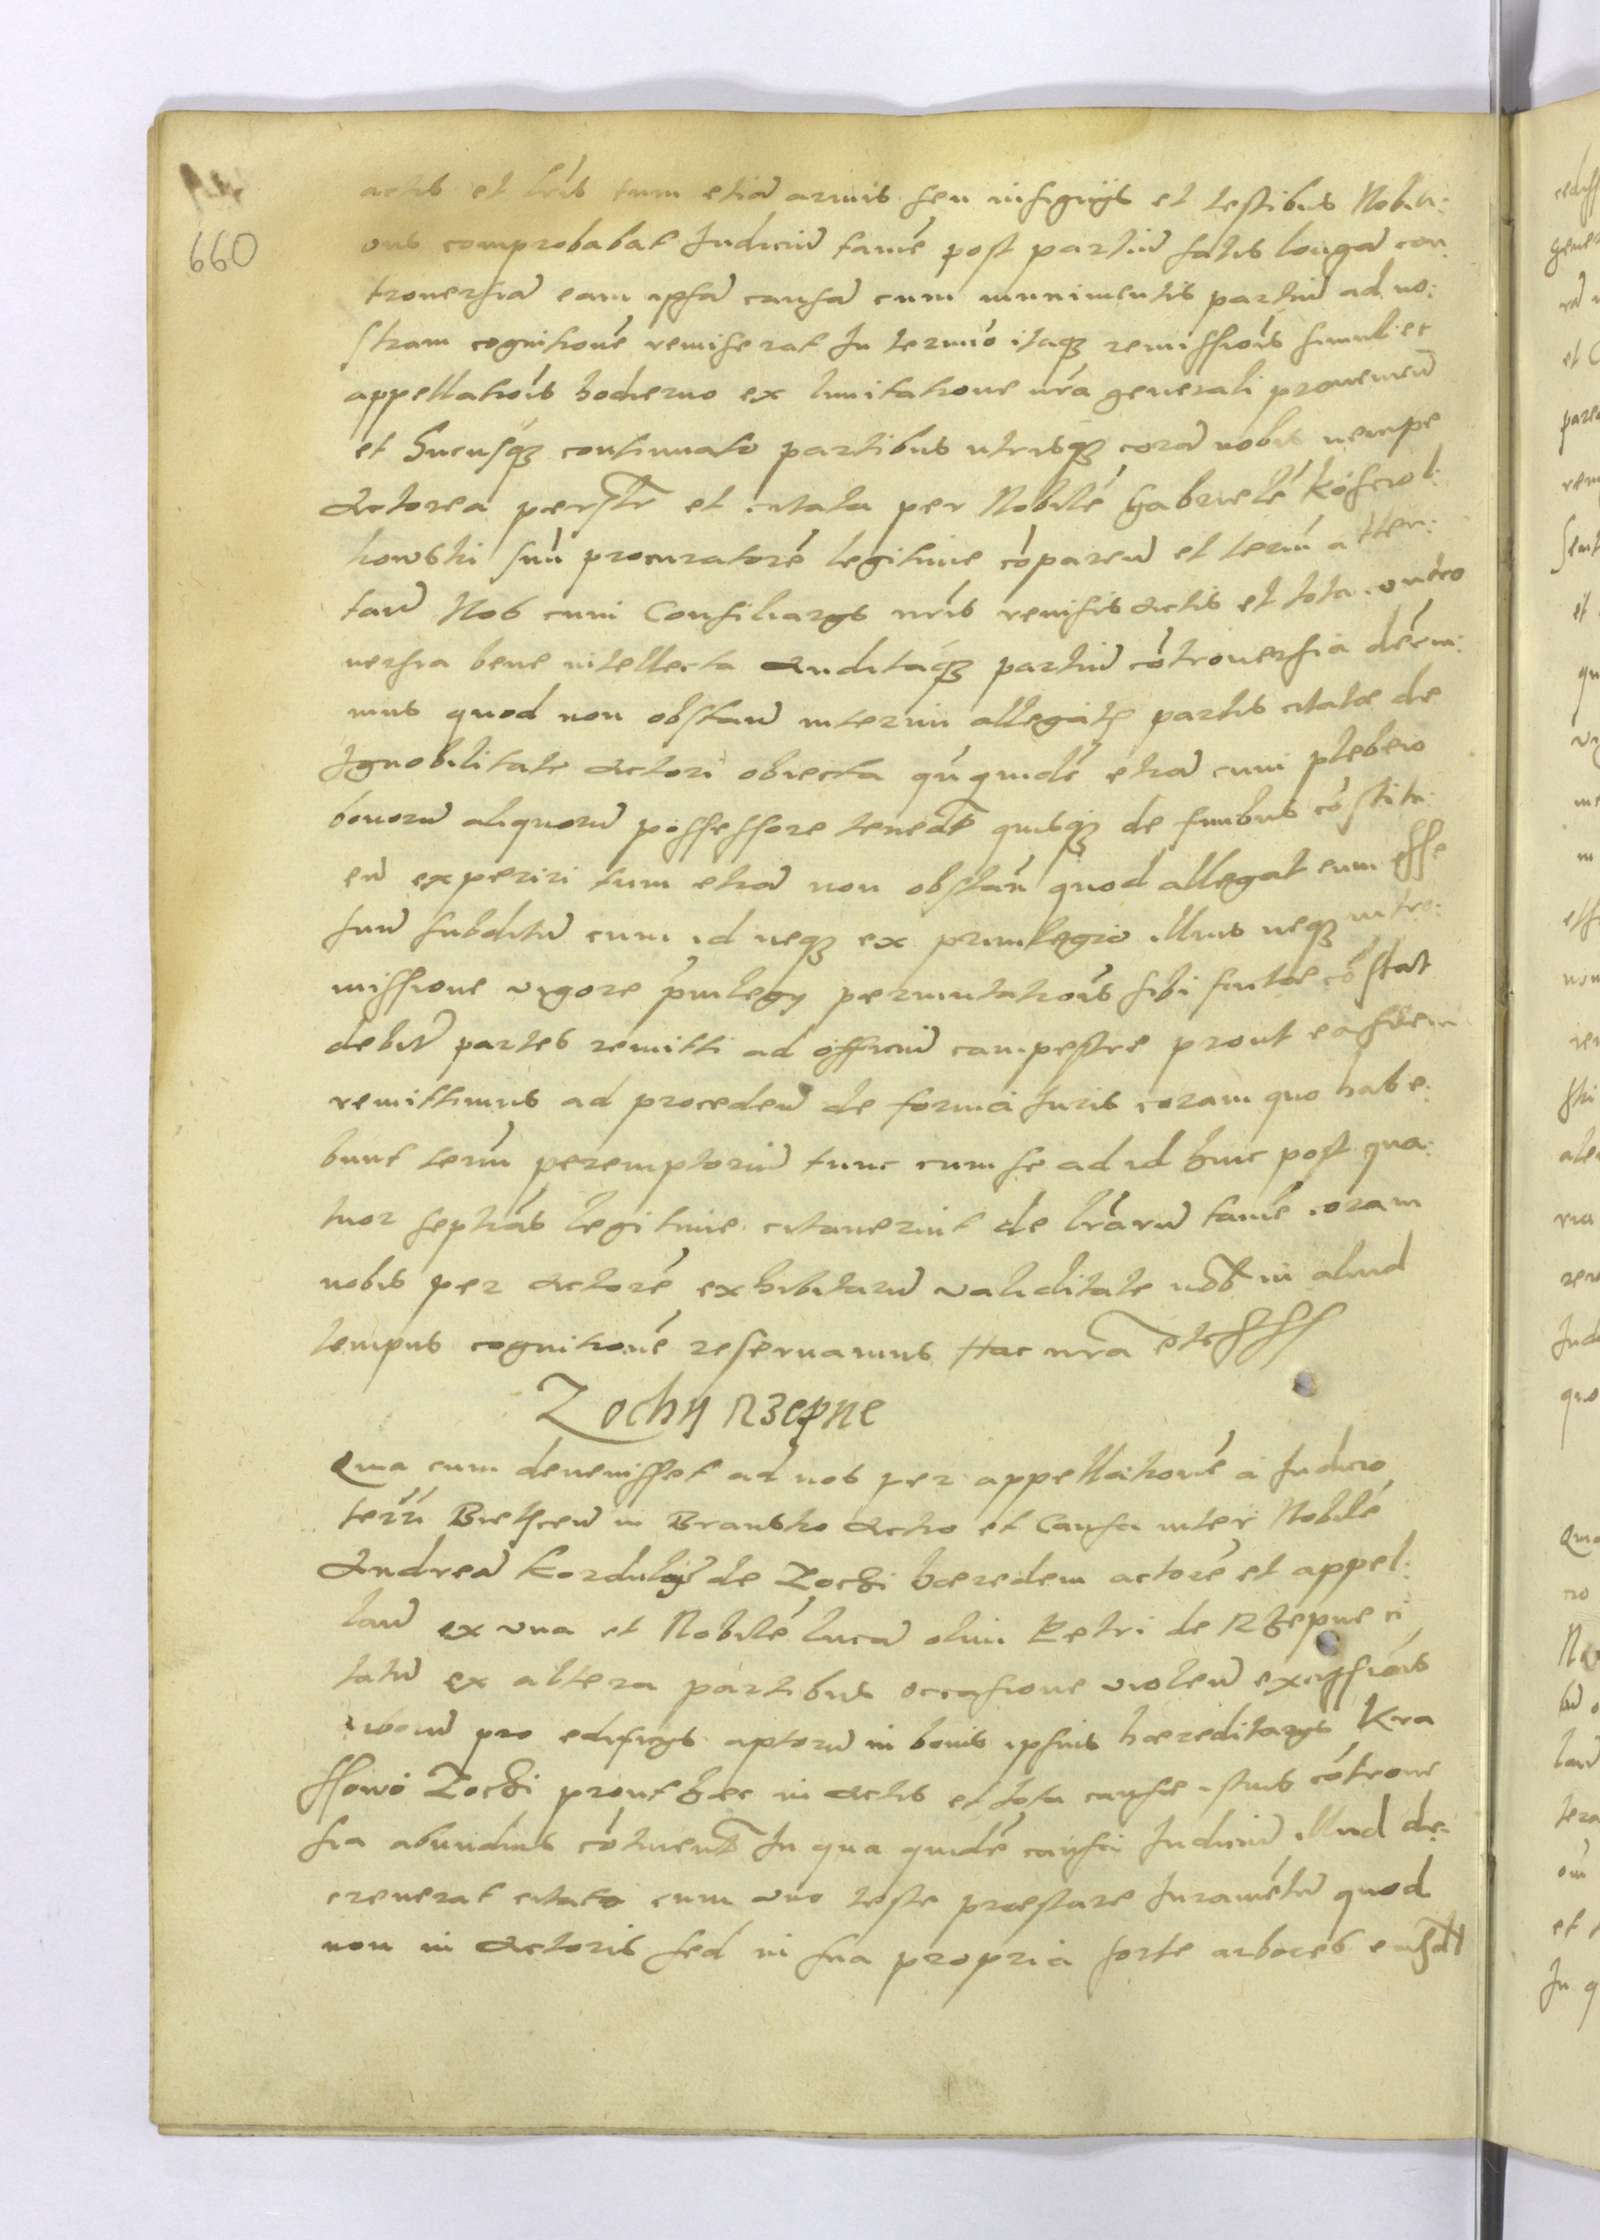 660
actis et lr̃is tum etiã armis seu insignijs et testibus Nobili:
ous comprobabat Iudiciũ tamẽ post partiũ satis longã con
trouersiã eam ipsã causã cum munimentis partiũ ad no:
stram cognitionẽ remiserat In termĩo itaq3 remissiõis simul et
appellatiõis hodierno ex limitatione nr̃a generali prouenieñ
et hucusq3 continuato partibus utrisq3 corã nobis nempe
Actorea perstr et citata per Nobilẽ Gabrielẽ Kosciol:
kowski suũ procuratorẽ legitime cõpareñ et termĩ atten:
tañ Nos cum Consiliarijs nr̃is reuisis Actis et tota contro
uersia bene intellecta Auditaq3 partiũ cõtrouersia decrei:
mus quod non obstañ interim allegatẽ partis citatæ de
Ignobilitate Actori obiecta qñquidẽ etiã cum plebeio
bonorũ aliquorũ possessore tenet͂ quisq3 de finibus cõstitu:
eñ experiri tum etiã non obstañ quod allegat eum esse
suũ subditũ cum id neq3 ex priuilegio illius neq3 intro:
missione vigore priuilegy permutatiõis sibi factæ cõstat
debũt partes remitti ad officiũ campestre prout easdem
remittimus ad procedeñ de forma Iuris coram quo habe:
bunt termĩ peremptoriũ tunc cum se ad id hinc post qua:
tuor septiãs legitime citauerint de lr̃arũ tamẽ coram
nobis per Actorẽ exhibitarũ validitate nob͂ in aliud
tempus cognitionẽ reseruamus Hac nr̃a etc
Zochy rzepne
Qua cum deuenisset ad nos per appellationẽ a Iudicio
terrĩ Bielsceñ in Bransko Actio et Causa inter Nobilẽ
Andreã Kordulyẽ de Zochi hæredem actorẽ et appel:
lañ ex vna et Nobilẽ lucã olim Petri de Rzepne ci
tatũ ex altera partibus occasione violeñ excissiõis
arborũ pro edificijs aptorũ in bonis ipsius hæreditarijs Kra
ssowo Zochi prout hæc in Actis et tota causæ istius cõtrouer
sia abundius cõtinent͂ In qua quidẽ causa Iudiciũ illud de:
creuerat citato cum vno teste præstare Iuramẽtũ quod
non in Actoris sed in sua propria sorte arbores